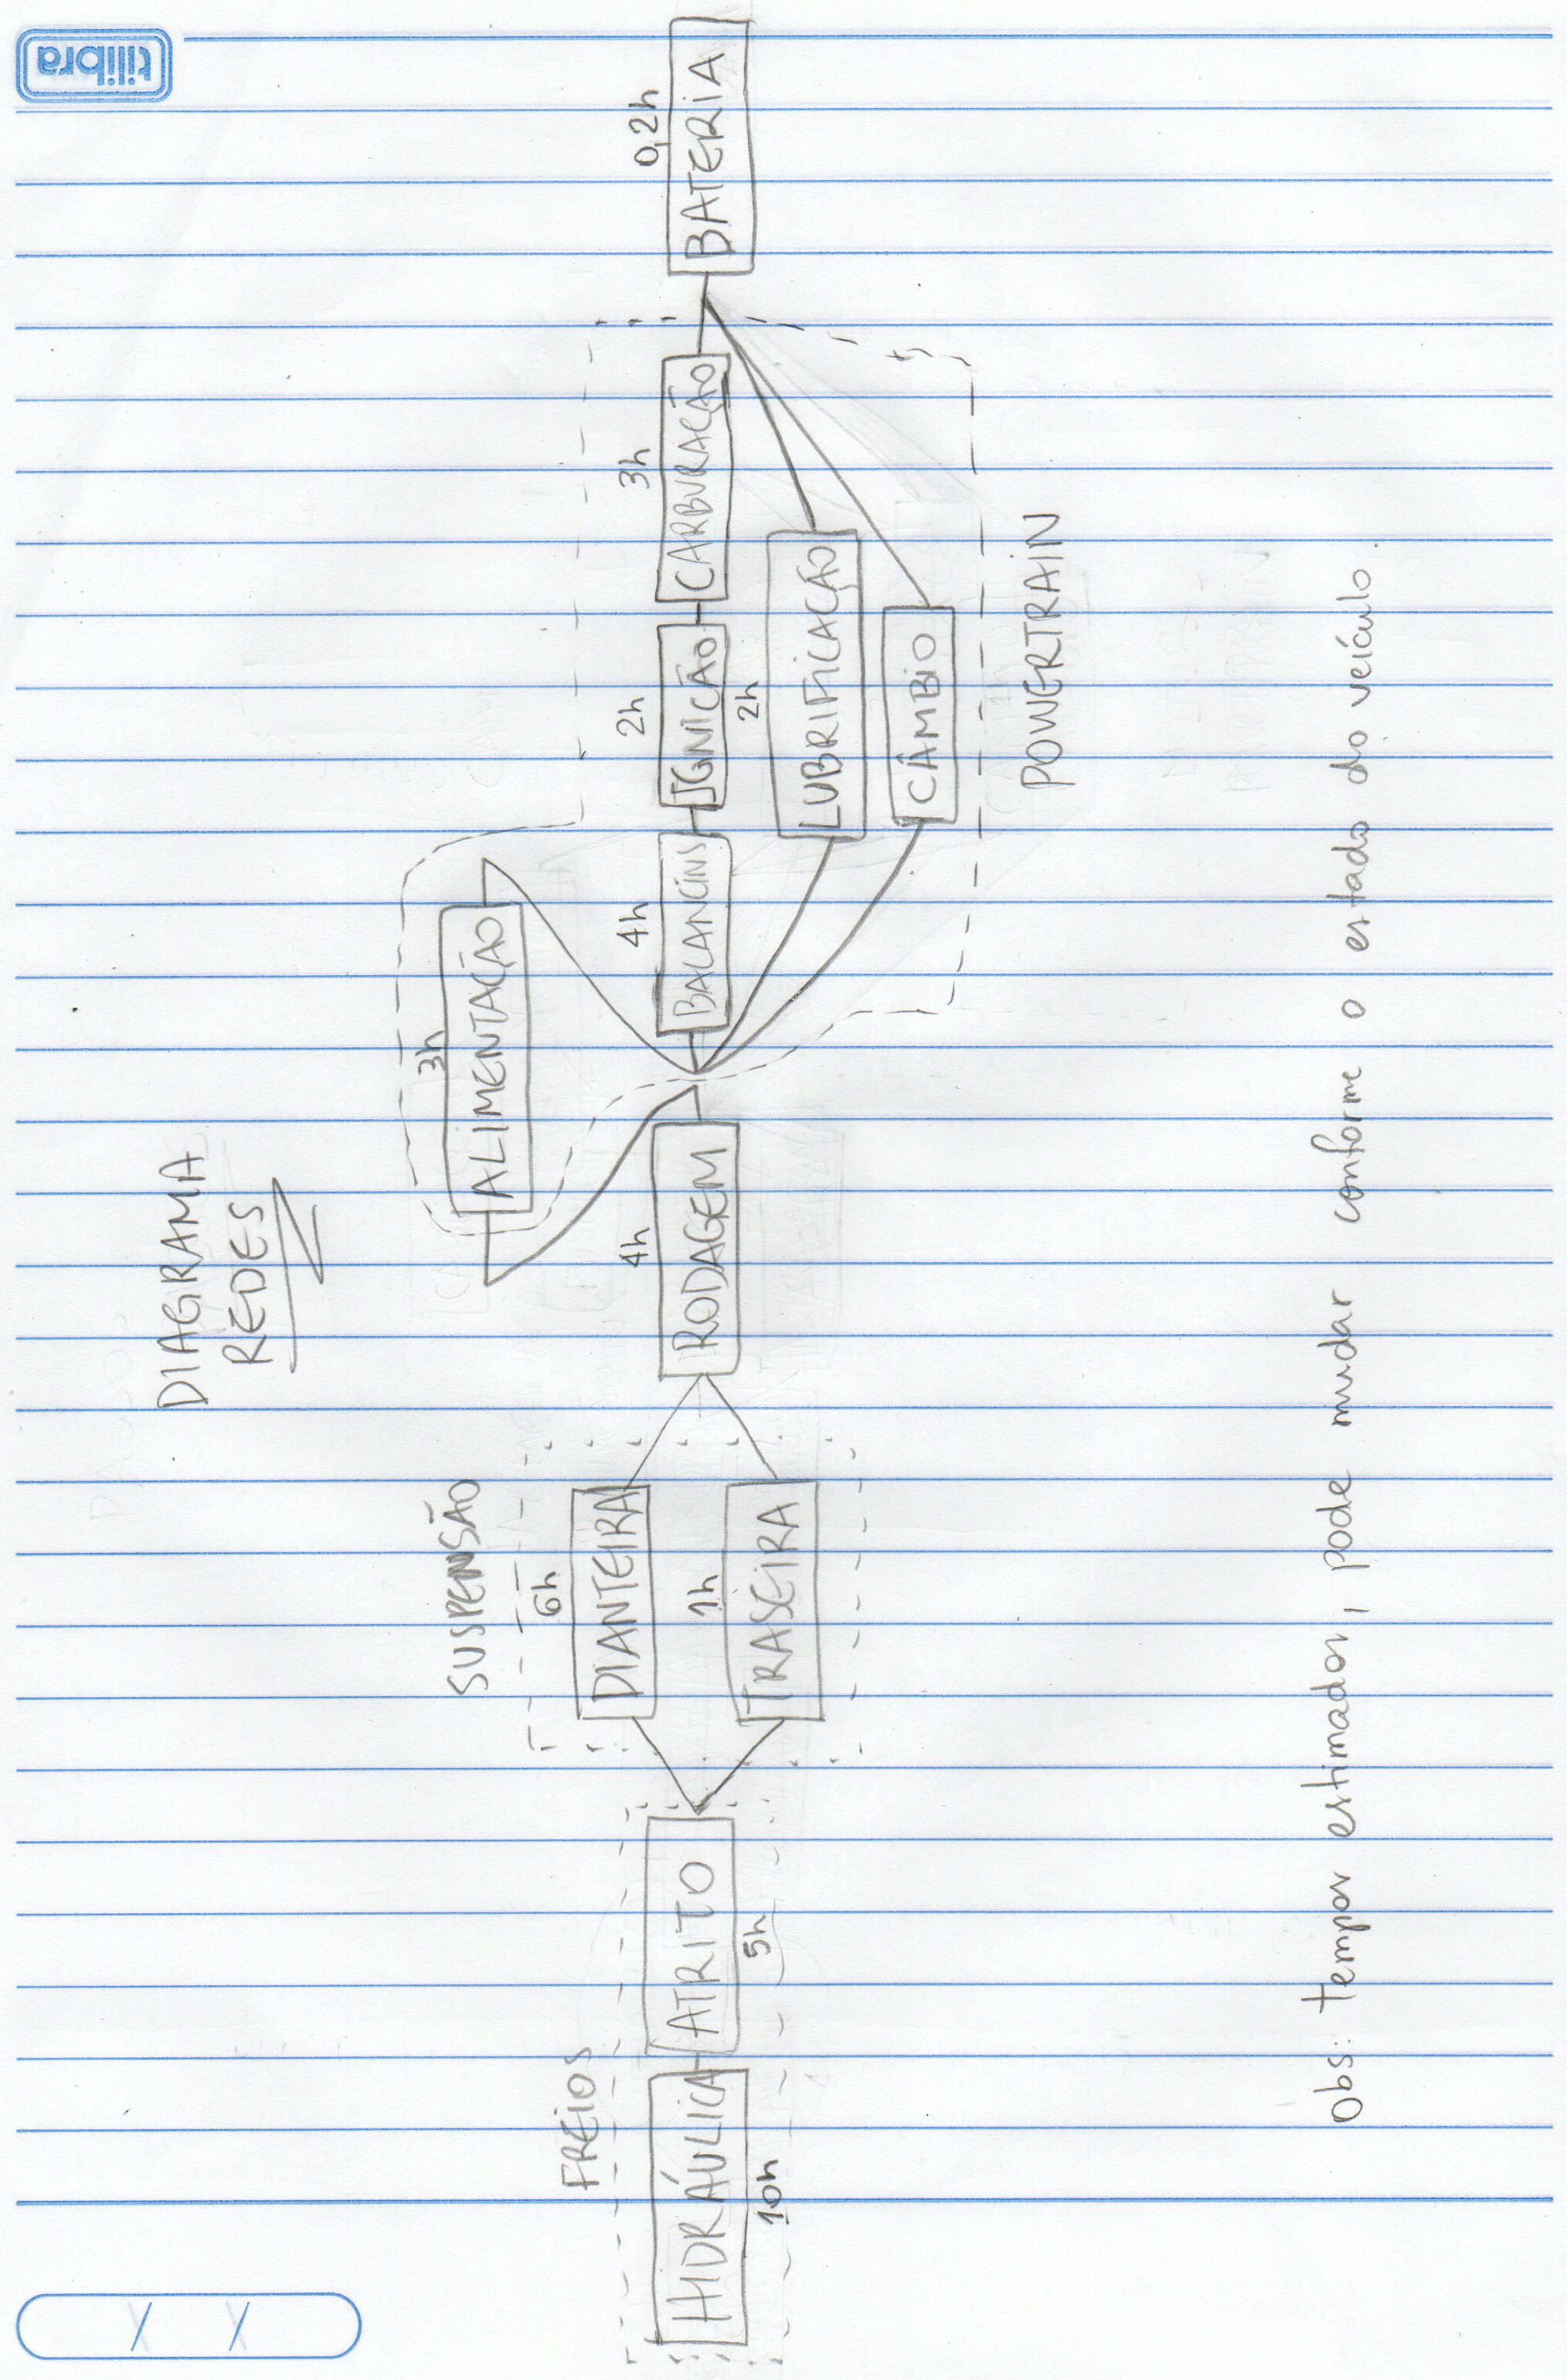 tilibra
DIAGRAMA
REDES
FREIOS
HIDRÁULICA
10h
ATRITO
5h
SUSPENSÃO
6h
DIANTEIRA
1h
TRASEIRA
4h
RODAGEM
3h
ALIMENTAÇÃO
4h
BALANCINS
2h
IGNIÇÃO
3h
CARBURAÇÃO
2h
LUBRIFICAÇÃO
CÂMBIO
POWERTRAIN
0,2h
BATERIA
Obs: tempos estimados, pode mudar conforme o estado do veículo.